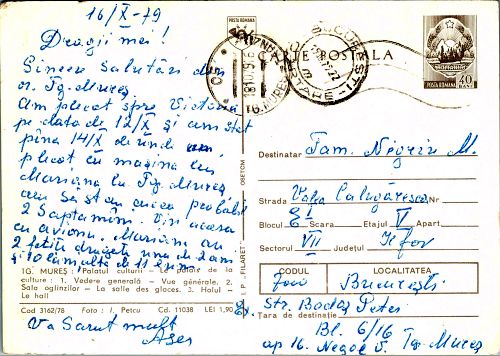 16/X-79
Dragii mei!
Sincere salutări din
or. Tg. Mureș
Am plecat spre Victoria
pe data de 12/X și am stat
pîna 14/X de unde am
plecat cu mașina lui
Mariana la Tg. Mureș
2 Saptamîni. Vin acasa
cu avionu. Mariana au
2 fetițe drăguțe una de 2 ani
și 10 luni alta de 11
TG. MUREȘ: Palatul culturii - Le palais de la
culture: 1. Vedere generală - Vue générale. 2.
Sala oglinzilor - La salle des glaces. 3. Holul -
Le hall
Cod 3162/78 Foto: I. Petcu Cd. 11038 LEI 1,90
Va Sarut mult
POSTA ROMANA
CARTE POSTALA
BUCUREȘTI
TG. MUREȘ
POSTA ROMANA 40
I.P. „FILARET"
Destinatar Fam. Negriu M.
Strada Valea Calugărească Nr.
Blocul Scara Etajul V Apart.
Sectorul VII Județul Ilfov
CODUL LOCALITATEA
București
Str. Bodoș Peter
Țara de destinație
Bl. 6/16
ap 16. Tg-Mureș